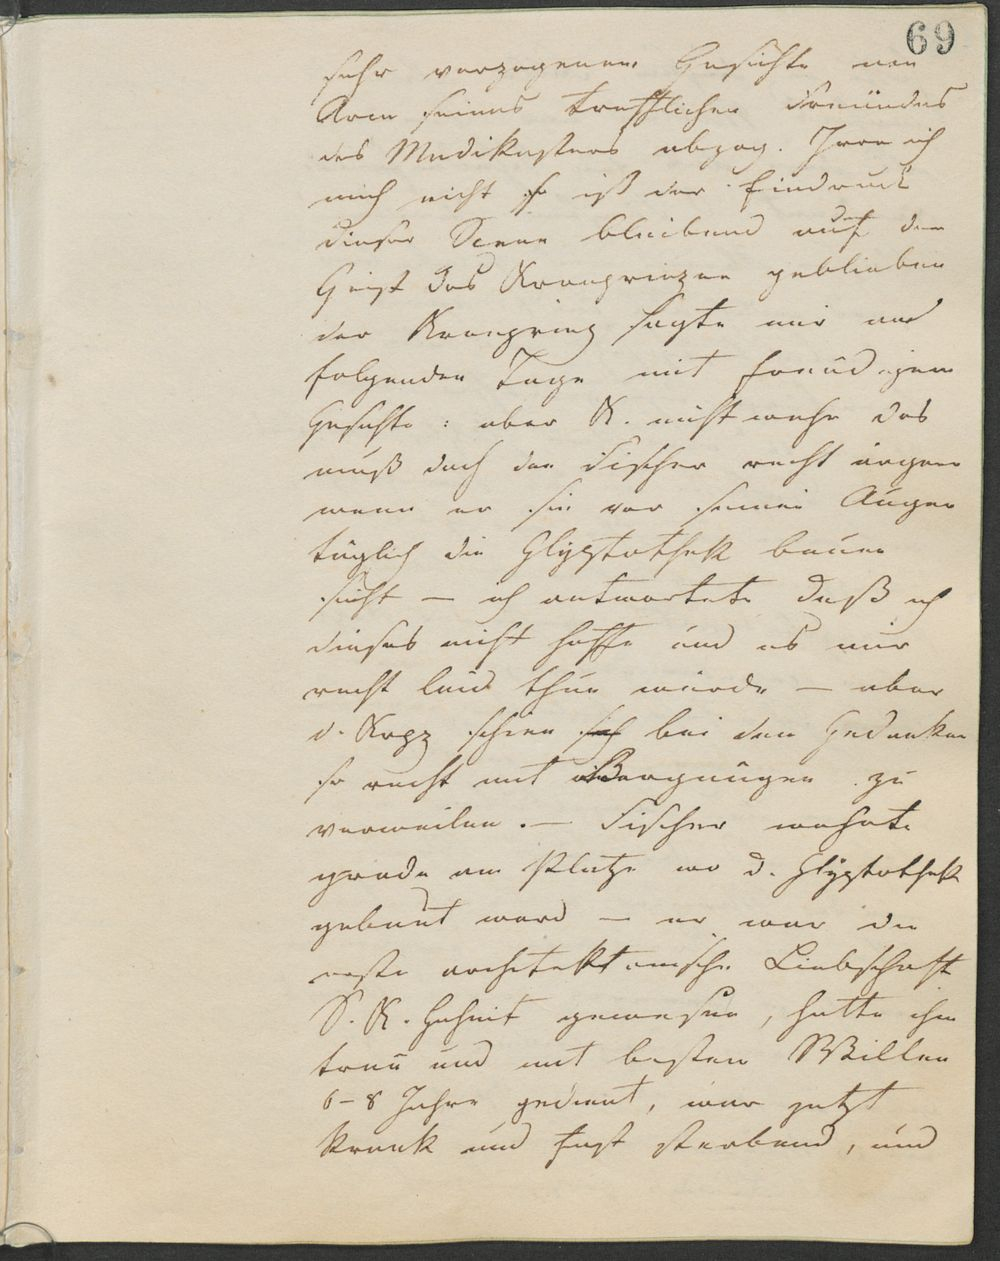 69
sehr verzogenem Gesichte vom
Arm seines trefflichen Freundes
des Medikasters abzog. Irre ich
mich nicht so ist der Eindruck
dieser Scene bleibend auf dem
Geist des Kronprinzen geblieben
der Kronprinz sagte mir am
folgenden Tage mit freudigem
Gesichte: aber K. nicht wahr das
muß doch den Fischer recht ärgern
wenn er sie vor seinen Augen
täglich die Glyptothek bauen
sieht — ich antwortete daß ich
dieses nicht hoffe und es mir
recht leid thun würde — aber
d. Krpz schien sich bei dem Gedanken
so recht mit Vergnügen zu
verweilen. — Fischer wohnte
grade am Platze wo d. Glyptothek
gebaut ward — er war die
erste architektonische Liebschaft
S. K. Hoheit gewesen, hatte ihm
treu und mit besten Willen
6–8 Jahre gedient, war jetzt
krank und fast sterbend, und